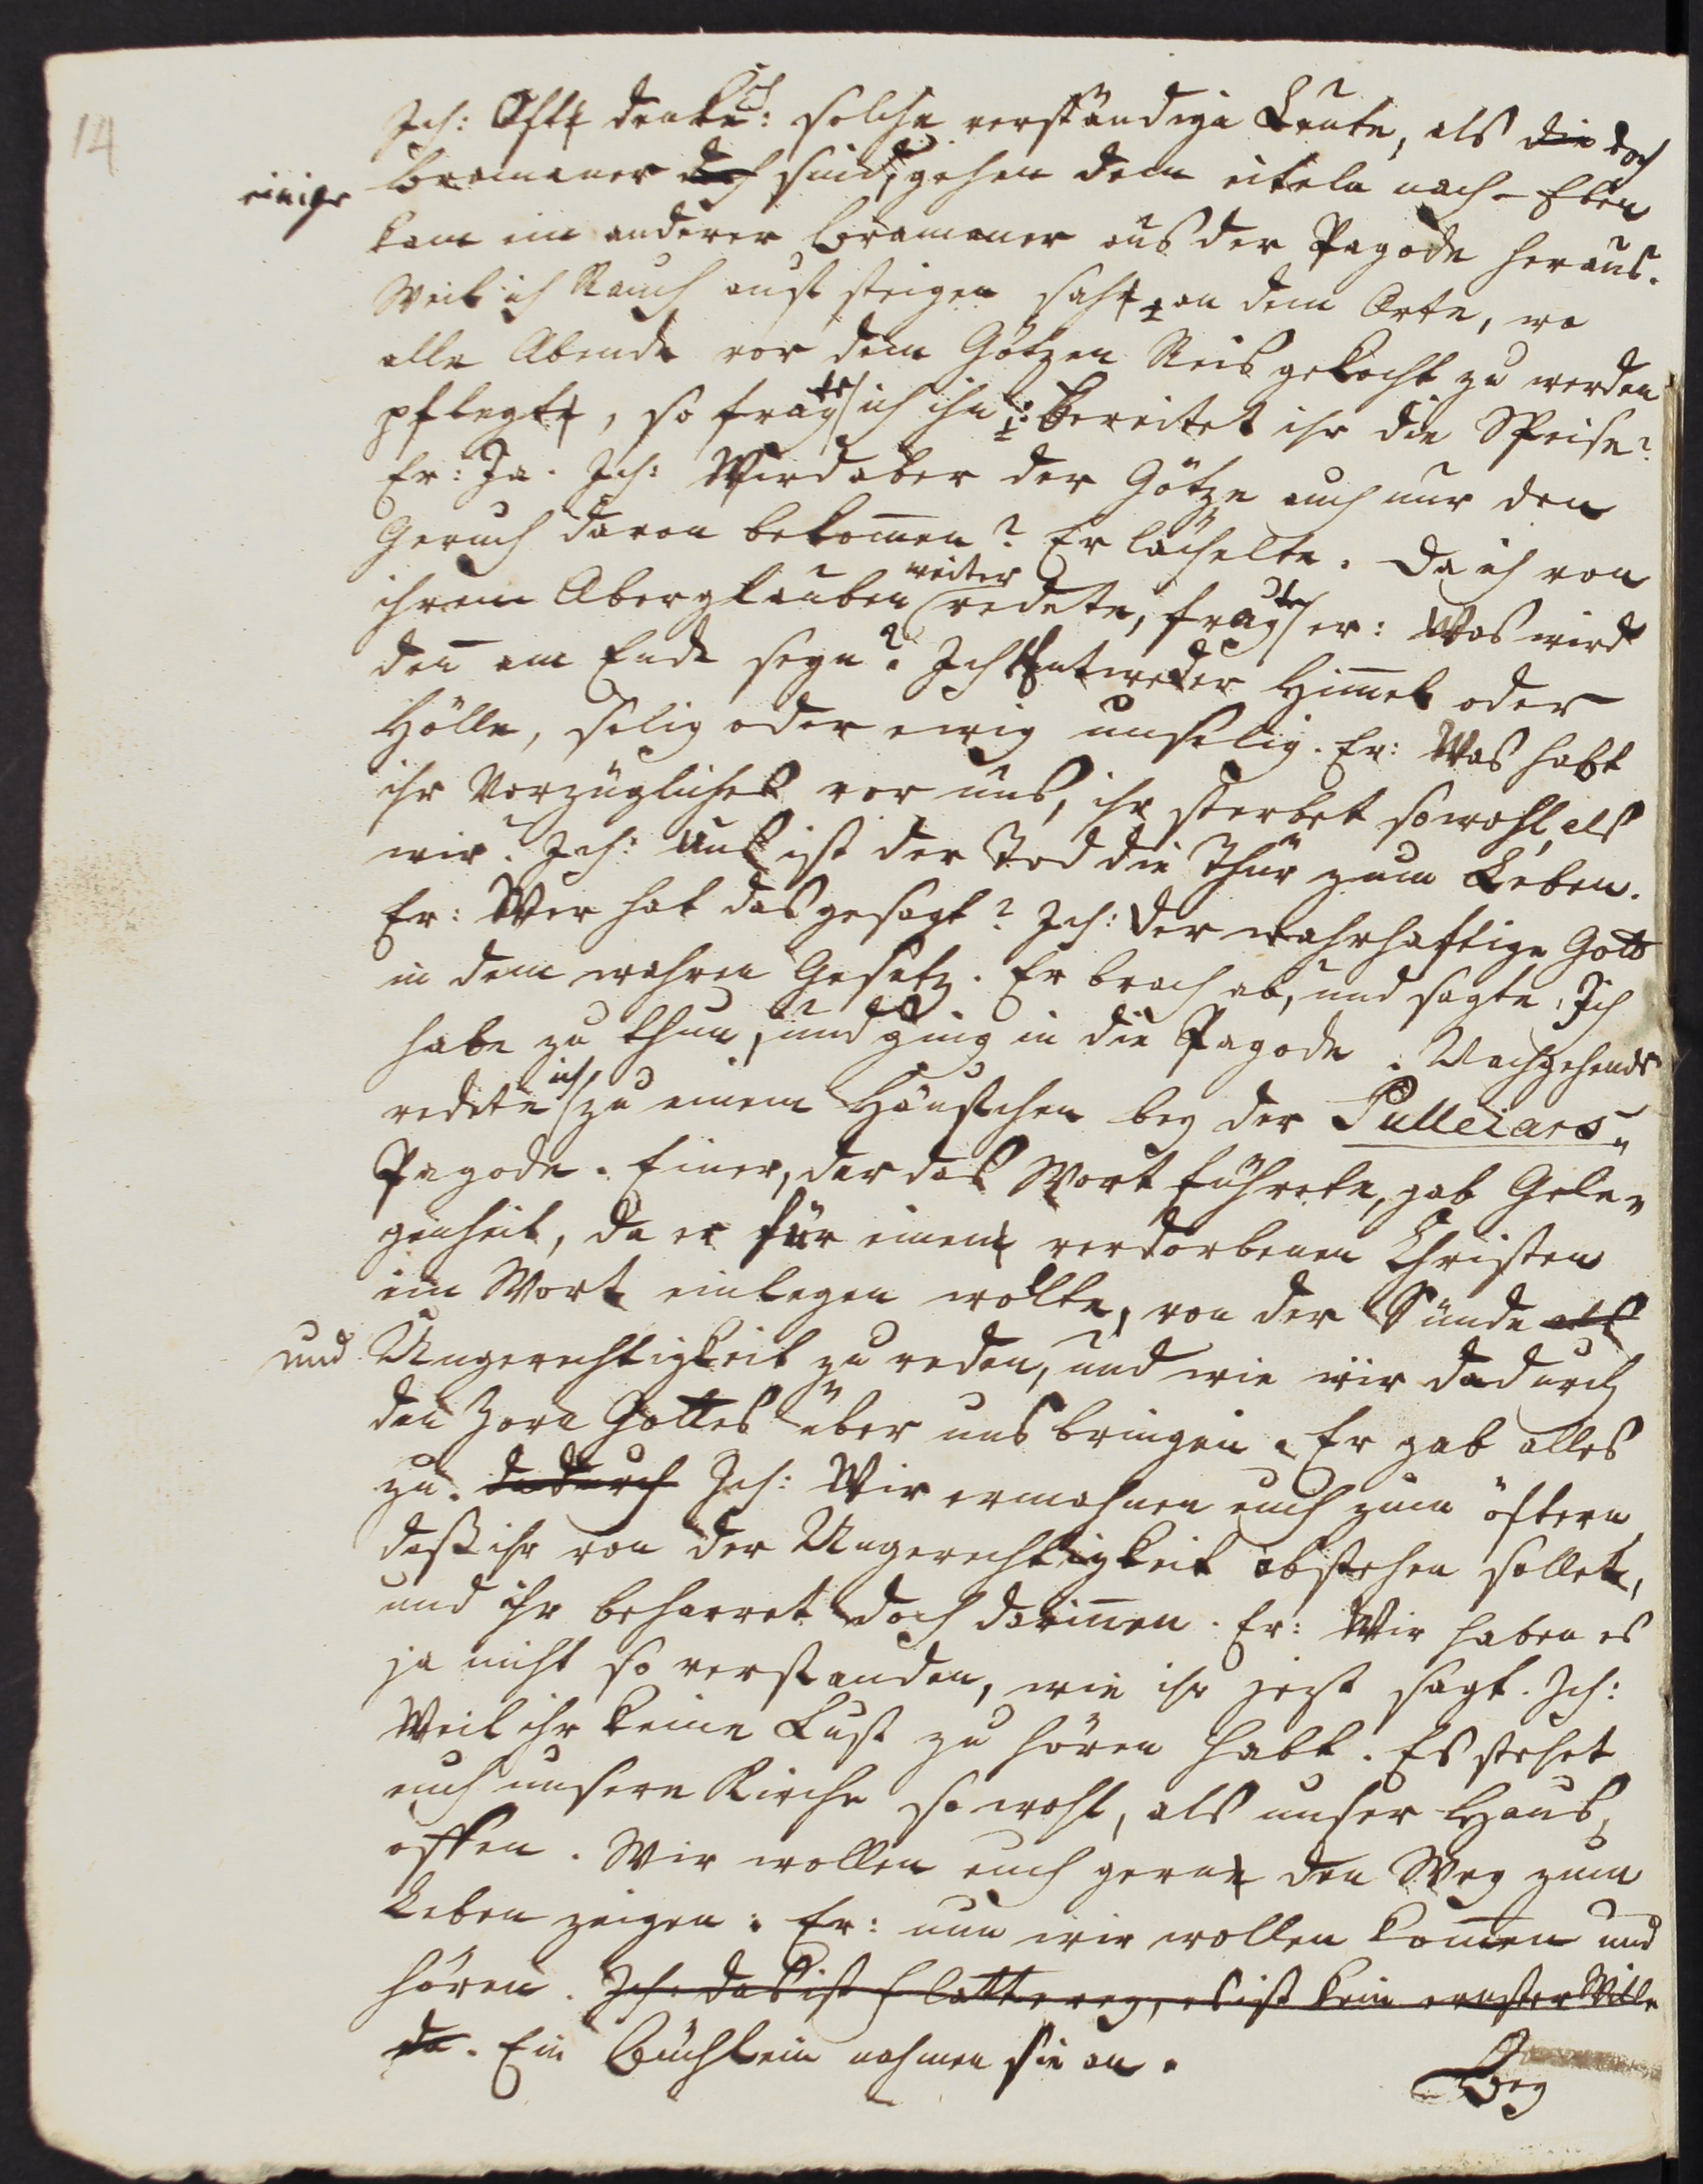 14
Ich: Oft denke ich: solche verständige Leute, als die doch
einige Bramaner doch sind, gehen dem eiteln nach. Eben
kam ein anderer Bramaner aus der Pagode heraus.
Weil ich Rauch auf steigen sahe an dem Orte, wo
alle Abende vor dem Götzen Reis gekocht zu werden
pflegte, so fragte ich ihn: Bereitet ihr die Speise?
Er: Ja. Ich: Wird aber der Götze auch nur den
Geruch davon bekom̄en? Er lächelte. Da ich von
ihrem Aberglauben weiter redete, fragte er: Was wird
den̄ am Ende seyn? Ich: Entweder Him̄el oder
Hölle, selig oder ewig unselig. Er: Was habt
ihr Vorzügliches vor uns, ihr sterbet sowohl, als
wir? Ich: Uns ist der Tod die Thür zum Leben.
Er: Wer hat das gesagt? Ich: Der wahrhaftige Gott
in dem wahren Gesetz. Er brach ab, und sagte: Ich
habe zu thun, und ging in die Pagode. Nachgehends
redete ich zu einem Häufchen bey der Pulleiars-
Pagode. Einer, der das Wort führete, gab Gele-
genheit, da er für einen verdorbenen Christen
ein Wort einlegen wolte, von der Sünde als
und Ungerechtigkeit zu reden, und wie wir dadurch
den Zorn Gottes über uns bringen. Er gab alles
zu. dadurch Ich: Wir ermahnen euch zum öftern,
daß ihr von der Ungerechtigkeit abstehen sollet,
und ihr beharret doch darin̄en. Er: Wir haben es
ja nicht so verstanden, wie ihr jezt sagt. Ich:
Weil ihr keine Lust zu hören habt. Es stehet
euch unsere Kirche so wohl, als unser Haus,
offen. Wir wollen euch gerne den Weg zum
Leben zeigen. Er: nun wir wollen kom̄en und
hören. Ich: das ist Flatterey, es ist kein ernster Wille
da. Ein Büchlein nahmen sie an.
Bey